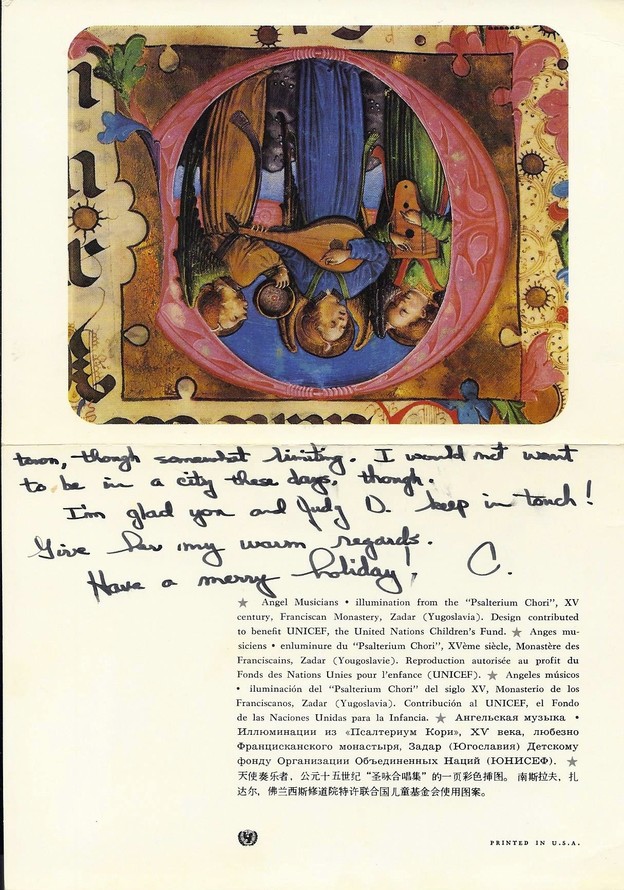 town, though somewhat limiting. I would not want
to be in a city these days, though.
I'm glad you and Judy D. keep in touch!
Give her my warm regards.
Have a merry holiday! C.
★ Angel Musicians • illumination from the “Psalterium Chori”, XV
century, Franciscan Monastery, Zadar (Yugoslavia). Design contributed
to benefit UNICEF, the United Nations Children's Fund. ★ Anges mu-
siciens • enluminure du “Psalterium Chori”, XVème siècle, Monastère des
Franciscains, Zadar (Yougoslavie). Reproduction autorisée au profit du
Fonds des Nations Unies pour l'enfance (UNICEF). ★ Angeles músicos
• iluminación del “Psalterium Chori” del siglo XV, Monasterio de los
Franciscanos, Zadar (Yugoslavia). Contribución al UNICEF, el Fondo
de las Naciones Unidas para la Infancia. ★ Ангельская музыка •
Иллюминации из «Псалтериум Кори», XV века, любезно
Францисканского монастыря, Задар (Югославия) Детскому
фонду Организации Объединенных Наций (ЮНИСЕФ). ★
天使奏乐者，公元十五世纪“圣咏合唱集”的一页彩色插图。 南斯拉夫，扎
达尔，佛兰西斯修道院特许联合国儿童基金会使用图案。
PRINTED IN U.S.A.